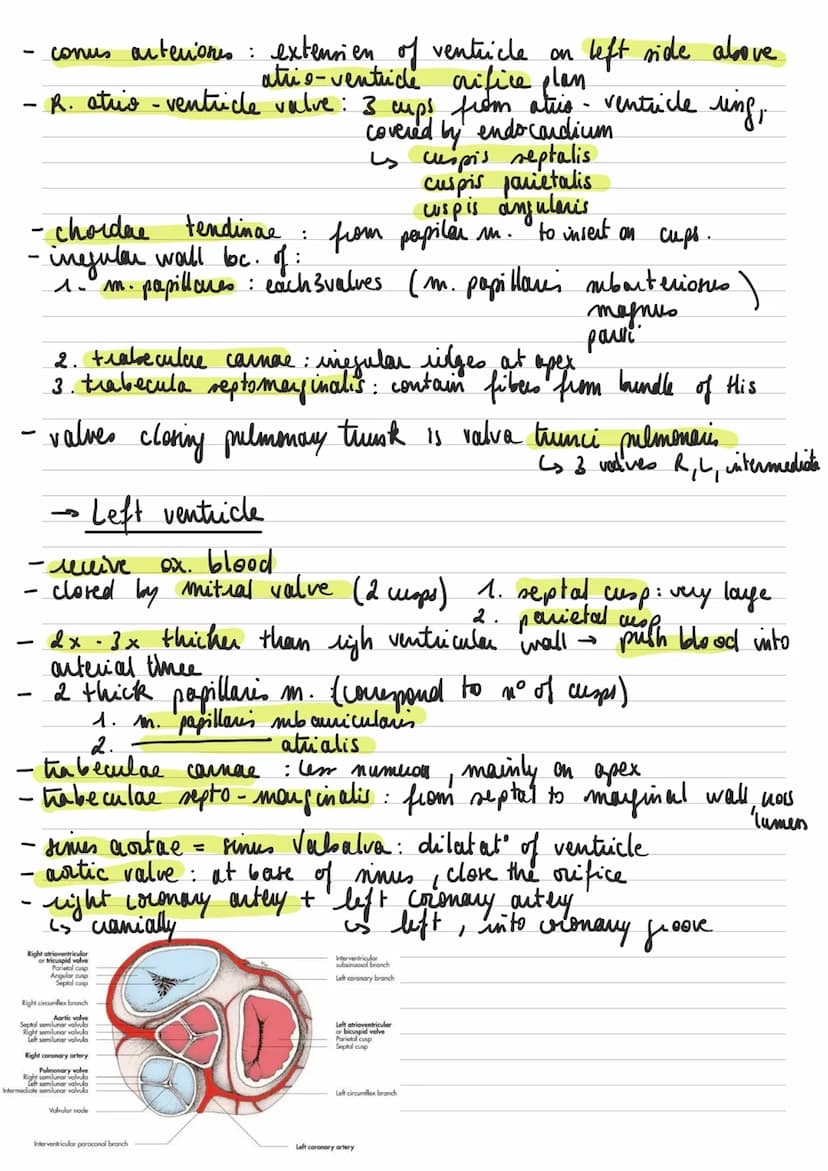 - conus arteriores : extension of ventricle on left side above
atrio-ventricle orifice plan
- R. atrio-ventricle valve : 3 cups from atrio-ventricle ring,
covered by endocardium
↳ cuspis septalis
cuspis parietalis
cuspis angularis
- chordae tendinae : from papilar m. to insert on cups.
- irregular wall bc. of :
1. m. papillares : each 3 valves (m. papillaris subarteriones)
magnus
parvi
2. trabeculae carnae : irregular ridges at apex
3. trabecula septomarginalis : contain fibers from bundle of His
- valves closing pulmonary trunk is valva trunci pulmonaris
↳ 3 valves R, L, intermediate
→ Left ventricle
- receive ox. blood
- closed by mitral valve (2 cusps) 1. septal cusp : very large
2. parietal cusp
- 2x - 3x thicker than righ ventricular wall → push blood into
arterial
- 2 thick papillaris m. (correspond to n° of cusps)
1. m. papillaris subauricularis
2. ——— atrialis
- trabeculae carnae : less numerous, mainly on apex
- trabeculae septo-marginalis : from septal to marginal wall,
lumen
- sinus aortae = sinus Valsalva : dilatat° of ventricle
- aortic valve : at base of sinus, close the orifice
- right coronary artery + left coronary artery
↳ cranially ↳ left, into coronary groove
Right atrioventricular
or tricuspid valve
Parietal cusp
Angular cusp
Septal cusp
Right circumflex branch
Aortic valve
Septal semilunar valvula
Right semilunar valvula
Left semilunar valvula
Right coronary artery
Pulmonary valve
Right semilunar valvula
Left semilunar valvula
Intermediate semilunar valvula
Valvular node
Interventricular paraconal branch
Interventricular
subsinuosal branch
Left coronary branch
Left atrioventricular
or bicuspid valve
Parietal cusp
Septal cusp
Left circumflex branch
Left coronary artery